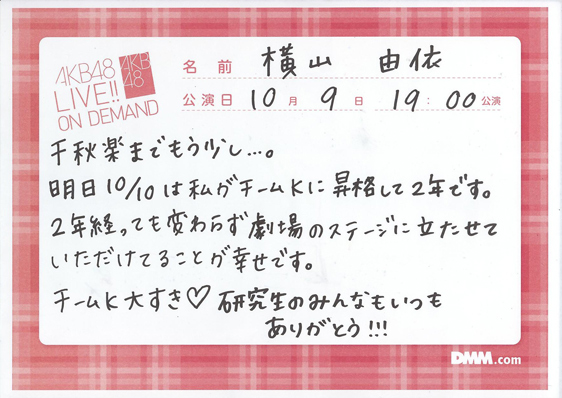 AKB48
LIVE!!
ON DEMAND
AKB
48
名前 横山 由依
公演日 10月 9日 19:00公演
千秋楽までもう少し…。
明日10/10は私がチームKに昇格して2年です。
2年経っても変わらず劇場のステージに立たせて
いただけてることが幸せです。
チームK大すき♡ 研究生のみんなもいつも
ありがとう!!!
DMM.com